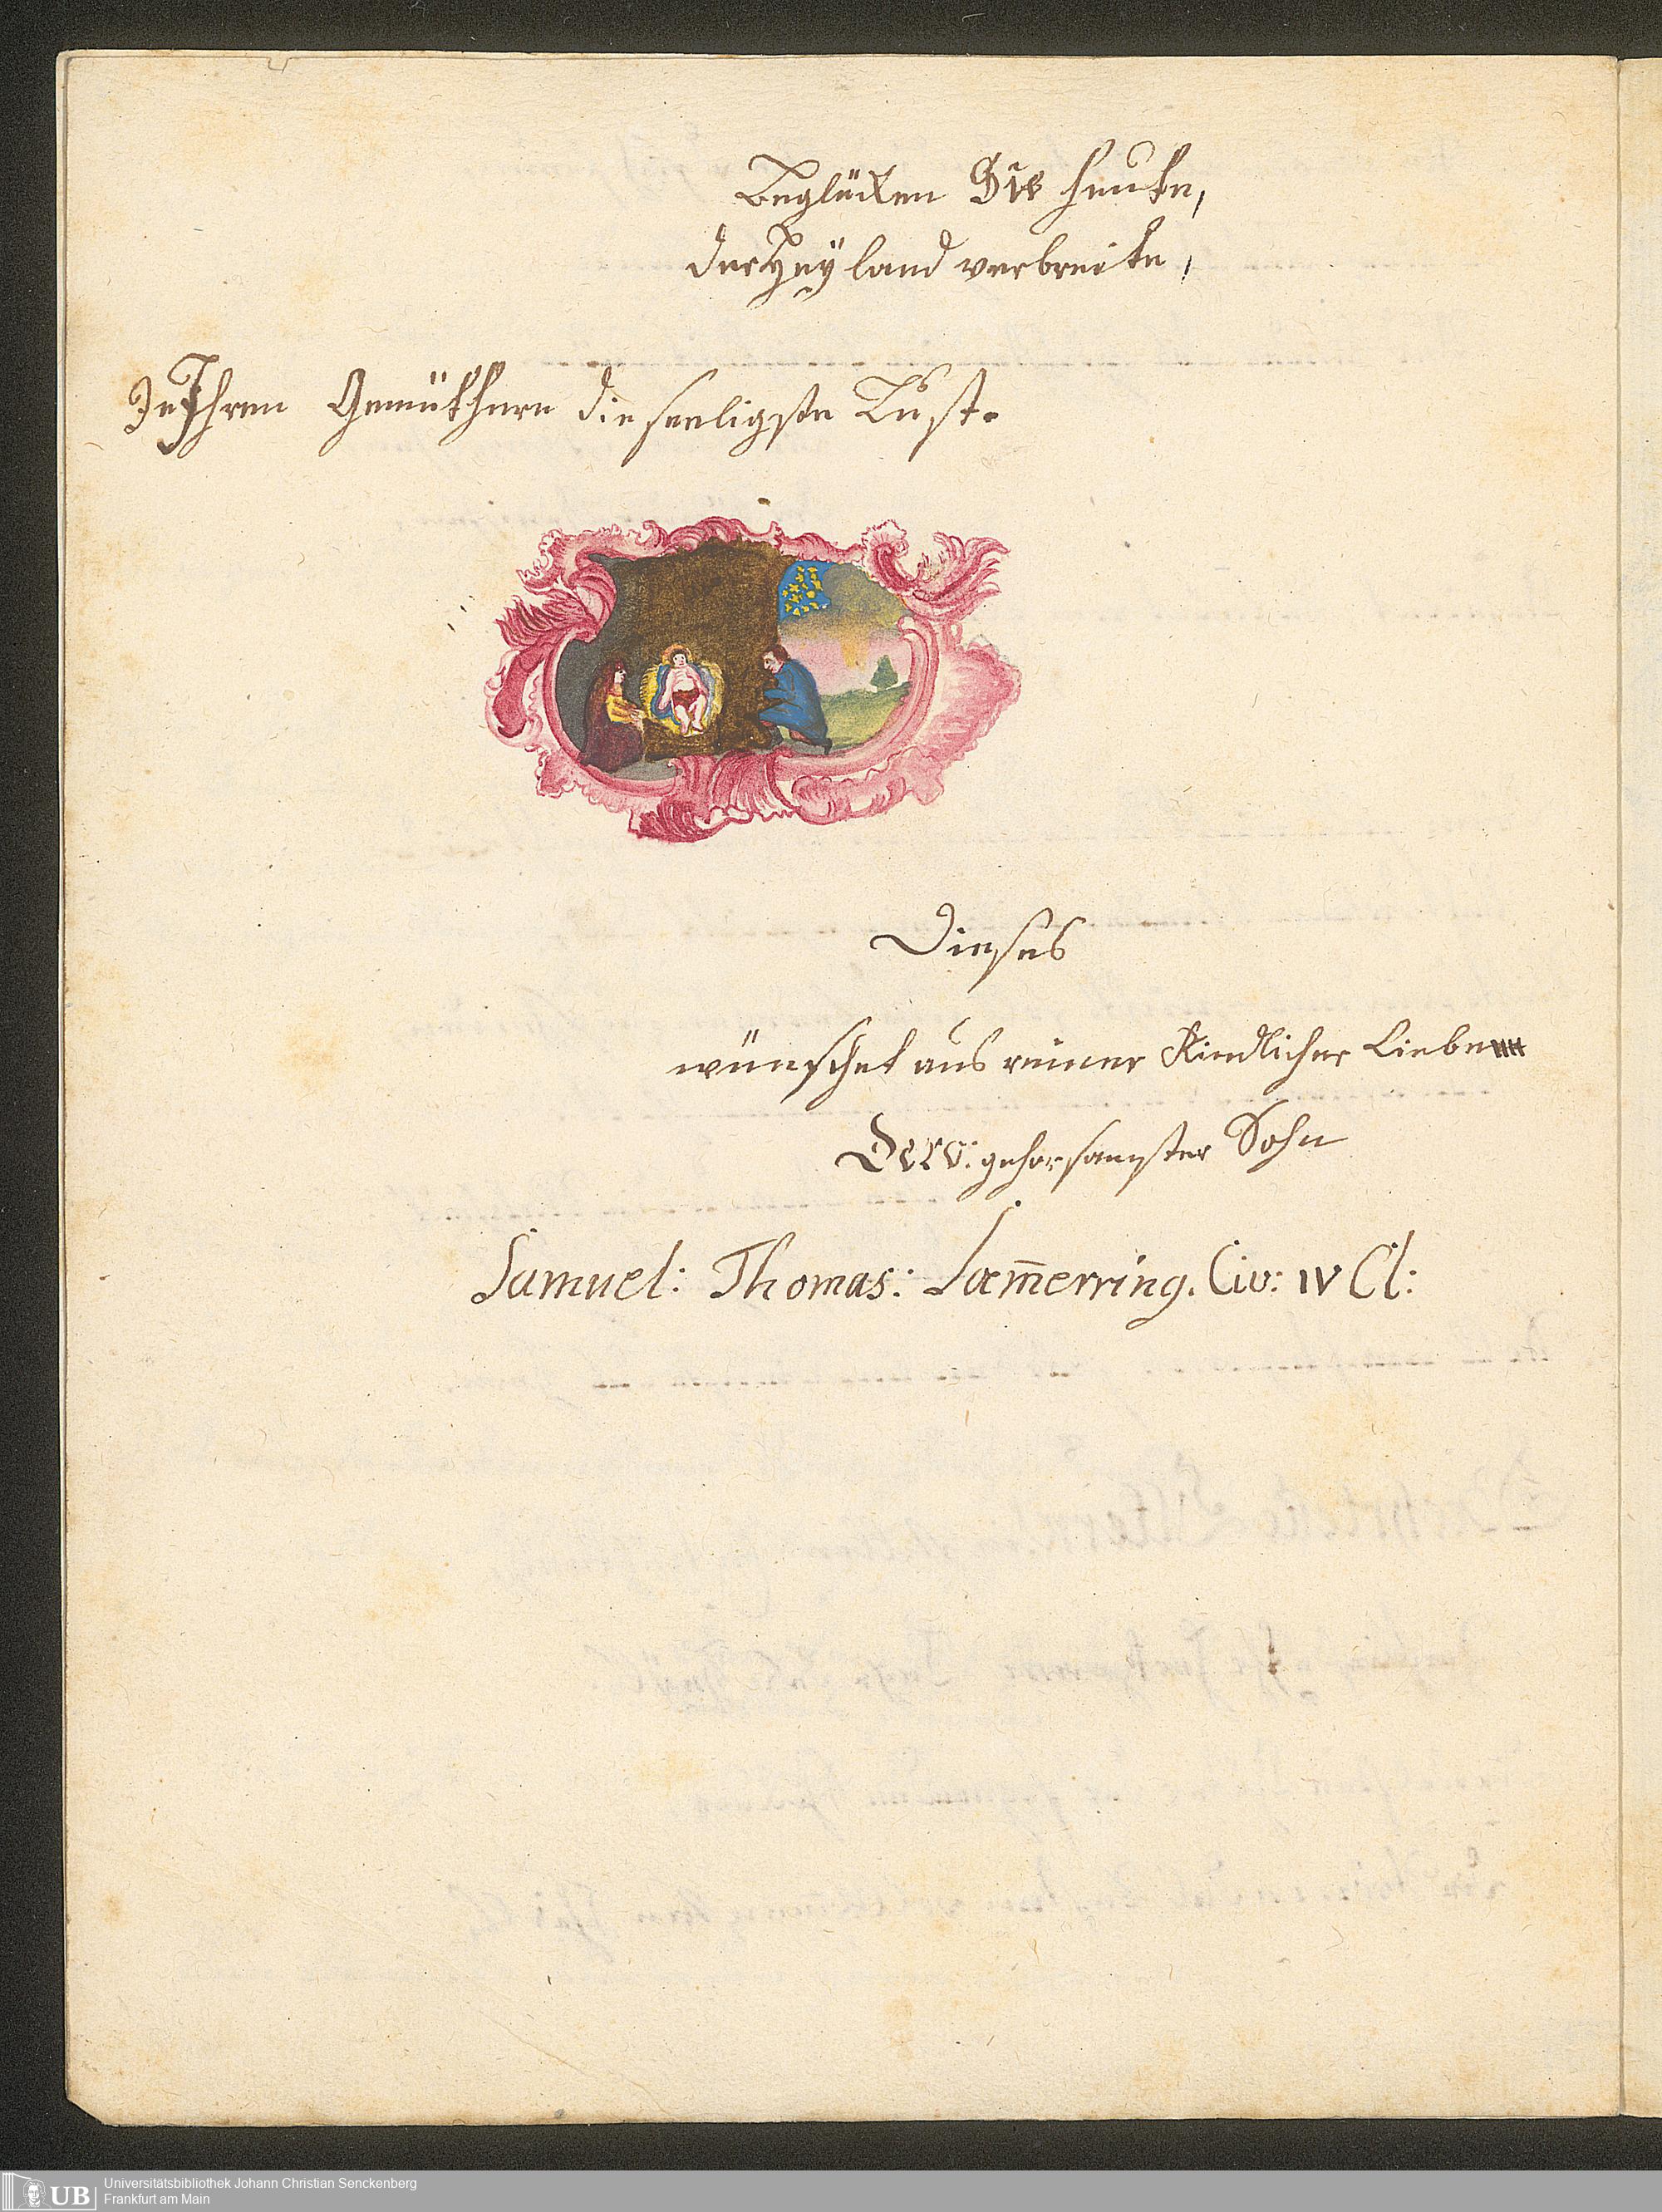 Beglücken Sie heute,
der Heyland verbreite,
In Ihren Gemüthern die seeligste Lust.
Dieses
wünschet aus reiner Kindlicher Liebe
Dero: gehorsamster Sohn
Samuel: Thomas: Soem̄erring. Civ: IV Cl:
UB
Universitätsbibliothek Johann Christian Senckenberg
Frankfurt am Main